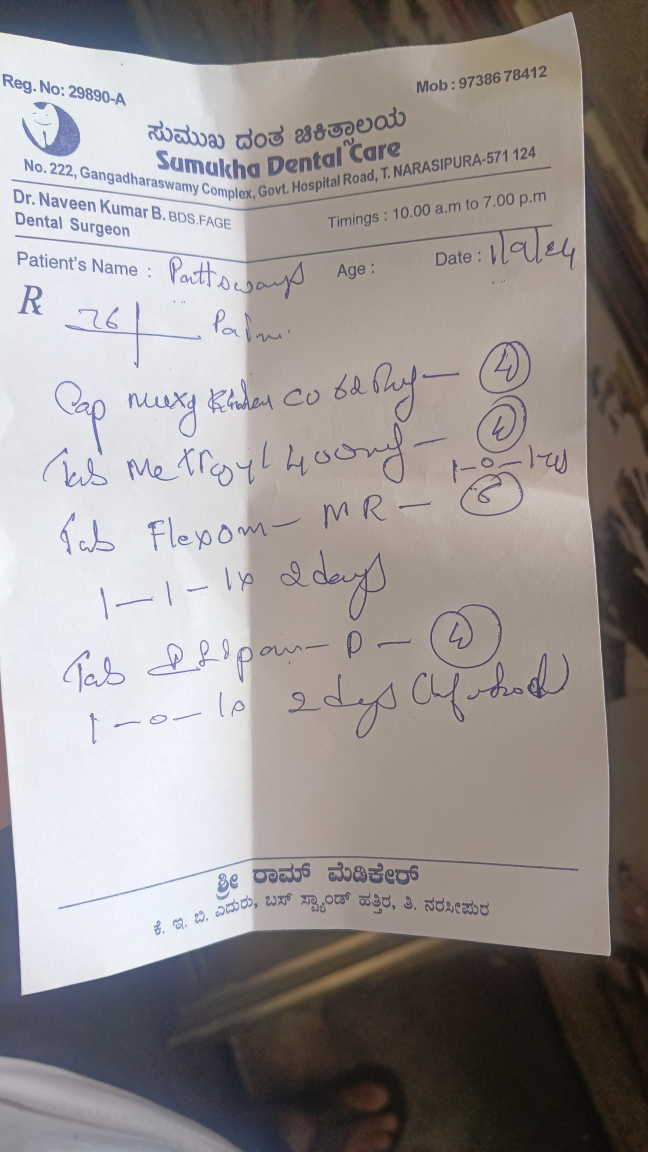 Reg. No: 29890-A
Mob : 97386 78412
ಸುಮುಖ ದಂತ ಚಿಕಿತ್ಸಾಲಯ
Sumukha Dental Care
No. 222, Gangadharaswamy Complex, Govt. Hospital Road, T. NARASIPURA-571 124
Dr. Naveen Kumar B. BDS.FAGE
Dental Surgeon
Timings : 10.00 a.m to 7.00 p.m
Patient's Name :
Age :
Date : 1/9/24
Rx
Cap
Tab Metrogyl 400mg — 4
1-0-1
Tab Flexom - MR — 6
1-1-1x 2 days
Tab - D — 4
1-0-1x 2 days
ಶ್ರೀ ರಾಮ್ ಮೆಡಿಕೇರ್
ಕೆ. ಇ. ಬಿ. ಎದುರು, ಬಸ್ ಸ್ಟ್ಯಾಂಡ್ ಹತ್ತಿರ, ತಿ. ನರಸೀಪುರ